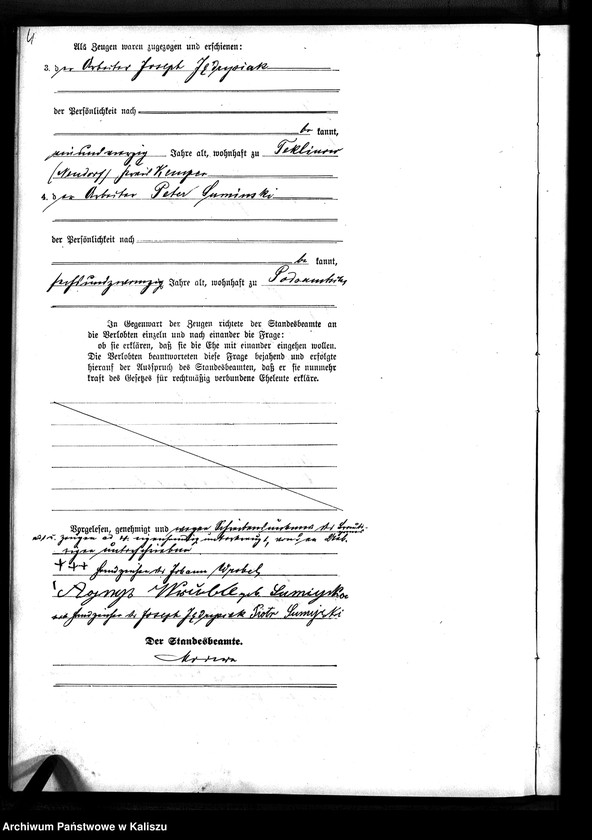 4
Als Zeugen waren zugezogen und erschienen:
3. der Arbeiter Joseph Jędrysiak
der Persönlichkeit nach
be kannt,
einundvierzig Jahre alt, wohnhaft zu Teklinow
(Neudorf) Kreis Kempen
4. der Arbeiter Peter Suminski
der Persönlichkeit nach
be kannt,
sechsundzwanzig Jahre alt, wohnhaft zu
In Gegenwart der Zeugen richtete der Standesbeamte an
die Verlobten einzeln und nach einander die Frage:
ob sie erklären, daß sie die Ehe mit einander eingehen wollen.
Die Verlobten beantworteten diese Frage bejahend und erfolgte
hierauf der Ausspruch des Standesbeamten, daß er sie nunmehr
kraft des Gesetzes für rechtmäßig verbundene Eheleute erkläre.
Vorgelesen, genehmigt und wegen Schreibensunkunde des
eigenhändig unterkreuzt, von den
unterschrieben
+++ Handzeichen des Johann Wrobel
Wrubel geb. Sumiński
+++ Handzeichen des Joseph Jędrysiak Piotr Sumiński
Der Standesbeamte.
Archiwum Państwowe w Kaliszu